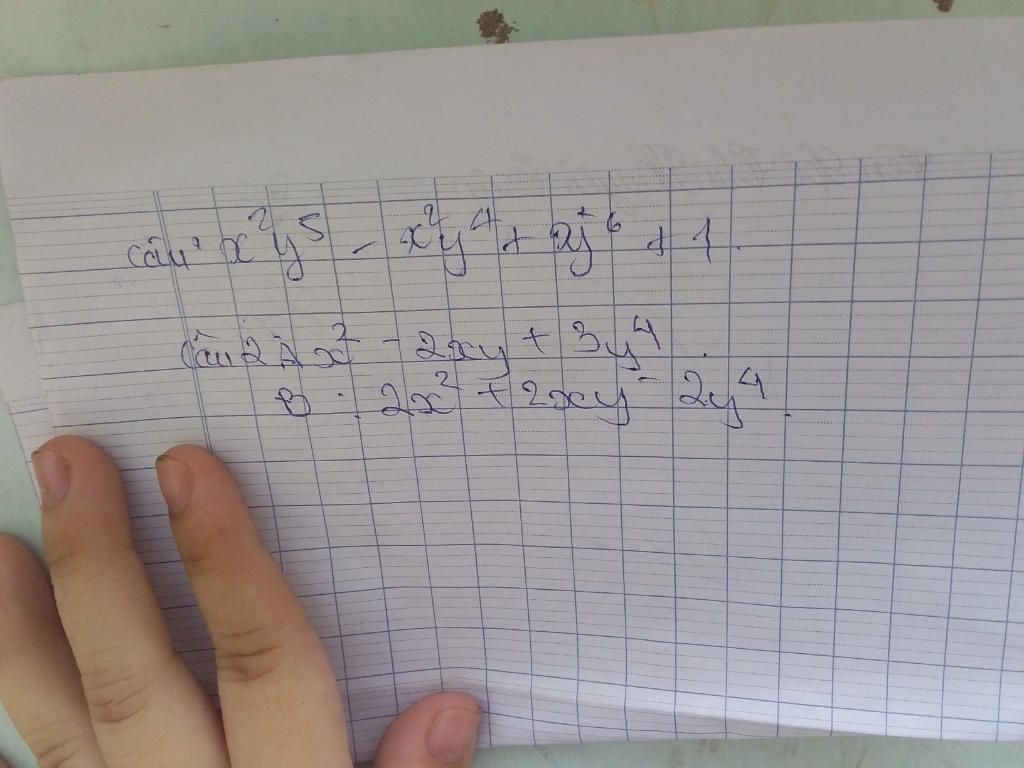 câu¹ x²y⁵ - x²y⁴ + 2y⁶ + 1.
câu 2 A x² - 2xy + 3y⁴.
B : 2x² + 2xy - 2y⁴.